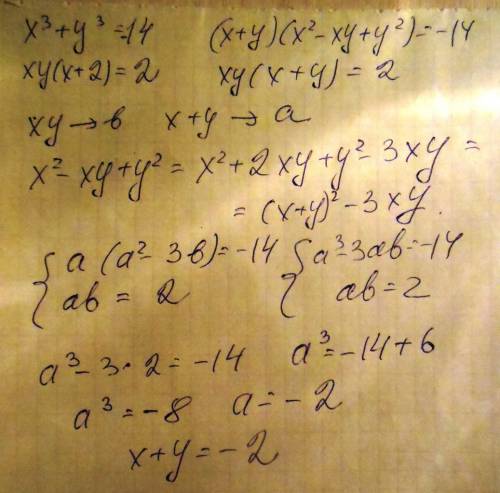 x³+y³=14 (x+y)(x²-xy+y²)=-14
xy(x+2)=2 xy(x+y)=2
xy→b x+y→a
x²-xy+y²=x²+2xy+y²-3xy=
=(x+y)²-3xy.
{a(a²-3b)=-14 {a³-3ab=-14
ab=2 ab=2
a³-3·2=-14 a³=-14+6
a³=-8 a=-2
x+y=-2